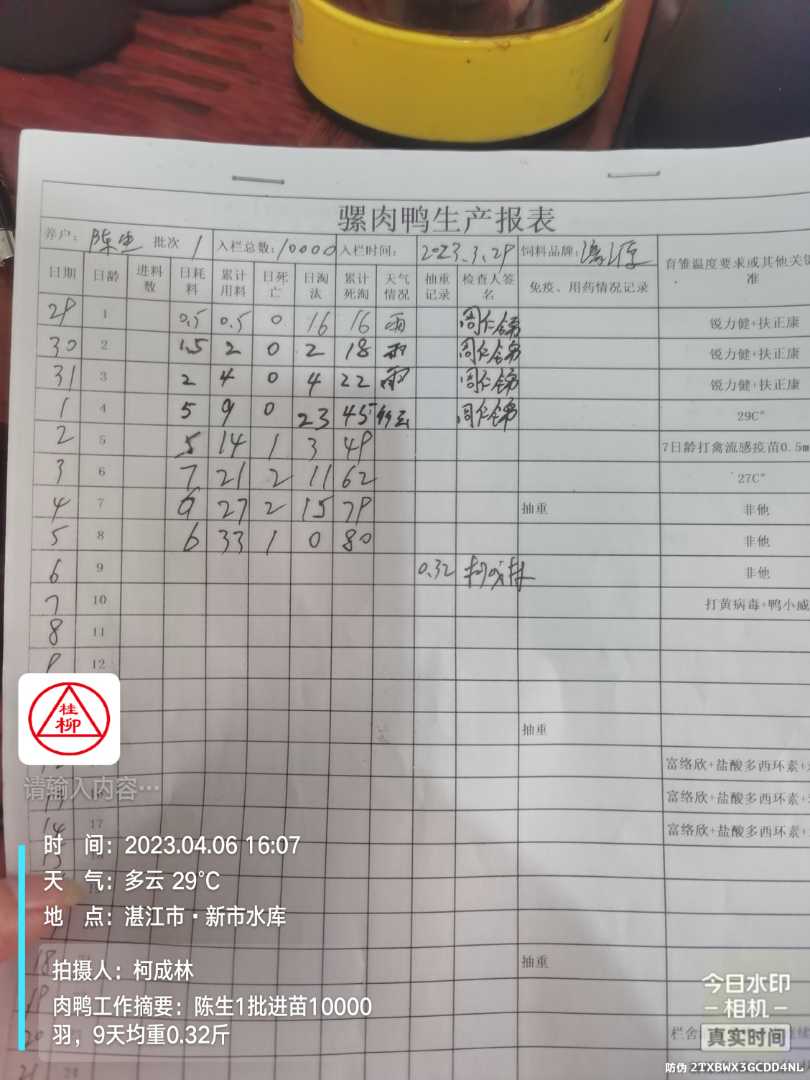 骡肉鸭生产报表
养户: 陈生 批次 1 入栏总数: 10000 入栏时间: 2023.3.29 饲料品牌:
日期 日龄 进料数 日耗料 累计用料 日死亡 日淘汰 累计死淘 天气情况 抽重记录 检查人签名 免疫、用药情况记录 育雏温度要求或其他关键 准
29 1 0.5 0.5 0 16 16 雨 周仁锦 锐力健+扶正康
30 2 1.5 2 0 2 18 雨 周仁锦 锐力健+扶正康
31 3 2 4 0 4 22 雨 周仁锦 锐力健+扶正康
1 4 5 9 0 23 45 周仁锦 29C°
2 5 5 14 1 3 49 7日龄打禽流感疫苗0.5m
3 6 7 21 2 11 62 27C°
4 7 6 27 2 15 79 抽重 非他
5 8 6 33 1 0 80 非他
6 9 0.32 柯成林 非他
7 10 打黄病毒+鸭小威
8 11
9 12
抽重
富络欣+盐酸多西环素+
富络欣+盐酸多西环素+
14 17 富络欣+盐酸多西环素+
18 抽重
19
20 栏舍
21
桂柳
请输入内容…
时 间: 2023.04.06 16:07
天 气: 多云 29℃
地 点: 湛江市·新市水库
拍摄人: 柯成林
肉鸭工作摘要: 陈生1批进苗10000
羽，9天均重0.32斤
今日水印
相机
真实时间
防伪 2TXBWX3GCDD4NL